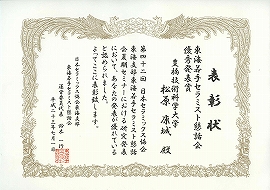 表彰状
東海若手セラミスト懇話会
優秀発表賞
豊橋技術科学大学
松原 康城 殿
第四十二回 日本セラミックス協会
東海支部東海若手セラミスト懇話
会夏期セミナーにおける研究発表
において、あなたの発表が優れている
と認められました。
よってここに表彰致します
平成二十三年七月一日
日本セラミックス協会東海支部
東海若手セラミスト懇話会
運営委員代表 鈴木